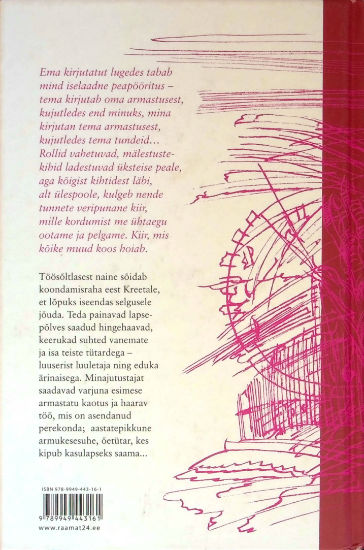 Ema kirjutatut lugedes tabab
mind iselaadne peapööritus –
tema kirjutab oma armastusest,
kujutledes end minuks, mina
kirjutan tema armastusest,
kujutledes tema tundeid...
Rollid vahetuvad, mälestuste-
kihid ladestuvad üksteise peale,
aga kõigist kihtidest läbi,
alt ülespoole, kulgeb nende
tunnete veripunane kiir,
mille kordumist me ühtaegu
ootame ja pelgame. Kiir, mis
kõike muud koos hoiab.
Töösõltlasest naine sõidab
koondamisraha eest Kreetale,
et lõpuks iseendas selgusele
jõuda. Teda painavad lapse-
põlves saadud hingehaavad,
keerukad suhted vanemate
ja isa teiste tütardega –
luuserist luuletaja ning eduka
ärinaisega. Minajutustajat
saadavad varjuna esimese
armastatu kaotus ja haarav
töö, mis on asendanud
perekonda; aastatepikkune
armukesesuhe, õetütar, kes
kipub kasulapseks saama...
ISBN 978-9949-443-16-1
9 789949 443161
www.raamat24.ee